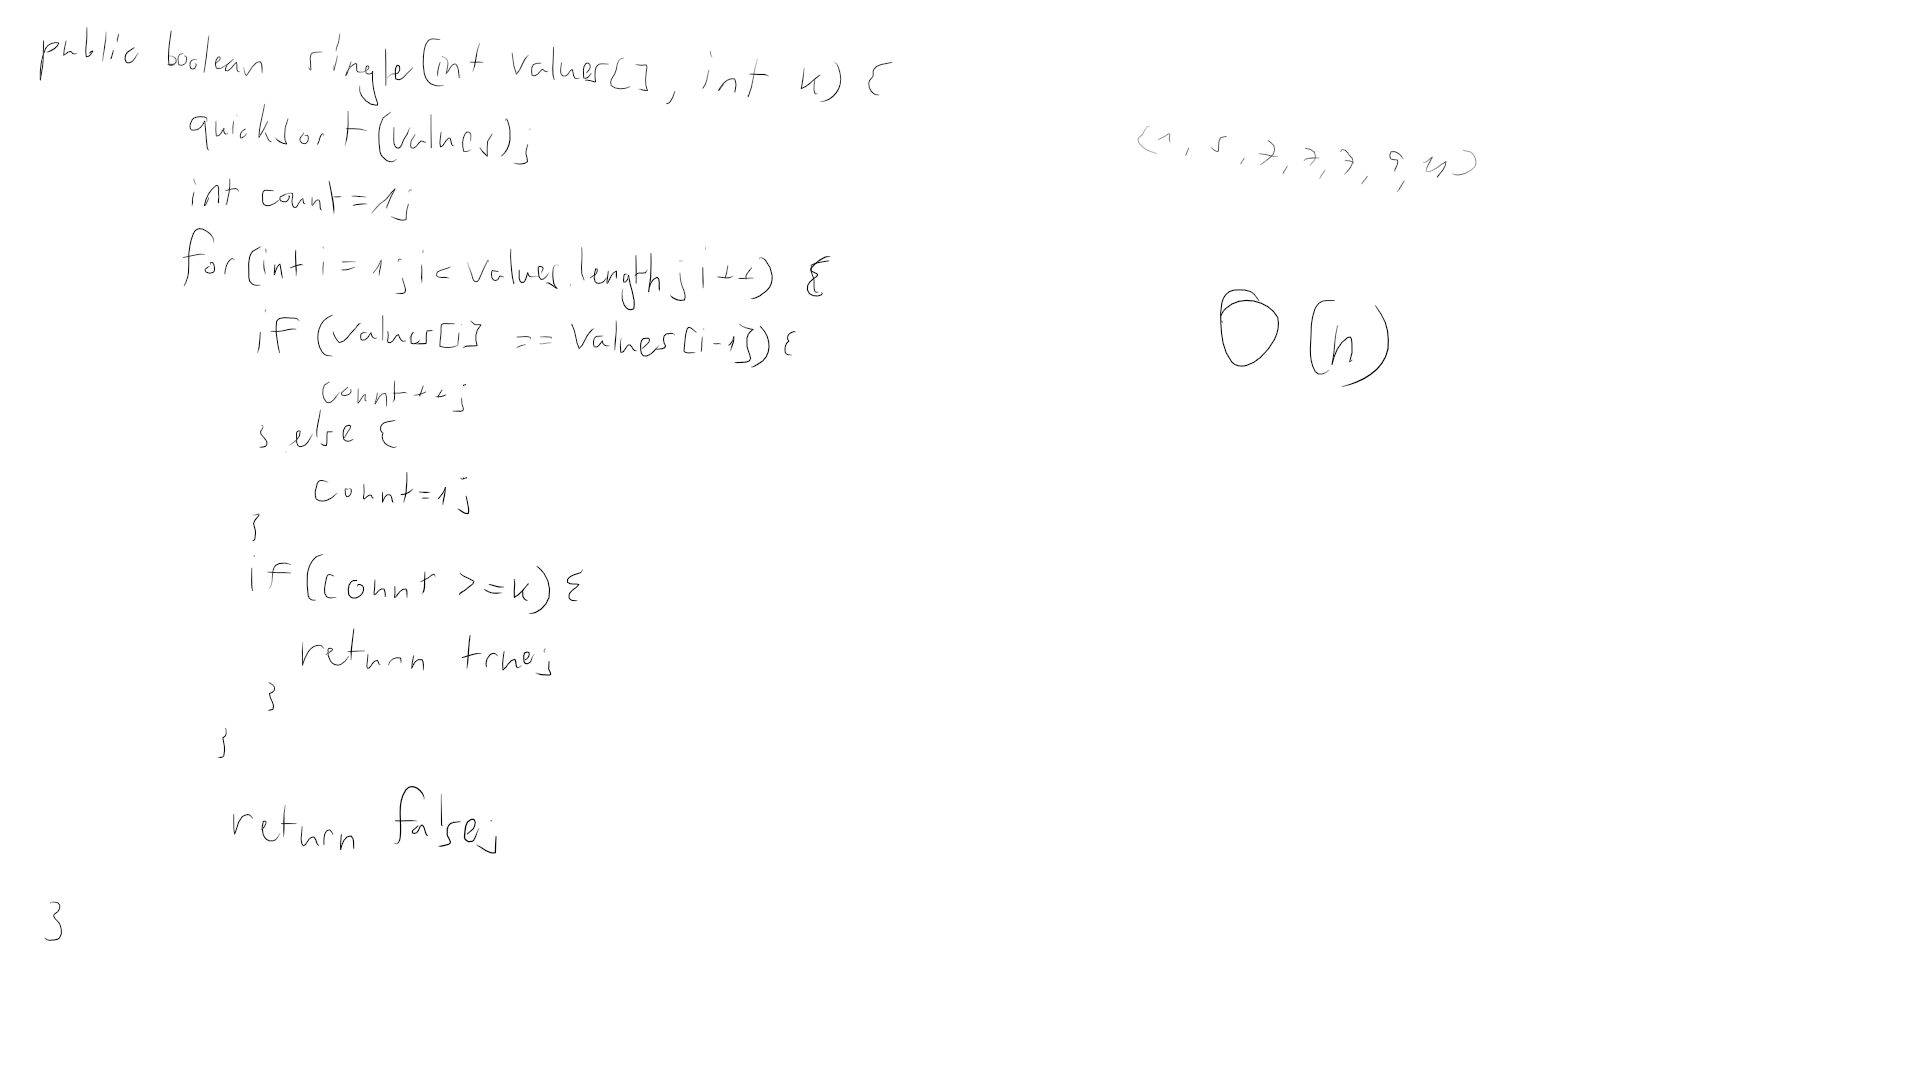 public boolean single(int values[], int k) {
quicksort(values);
int count=1;
for(int i = 1; i < values.length; i++) {
if (values[i] == values[i-1]) {
count++;
} else {
count=1;
}
if (count >= k) {
return true;
}
}
return false;
}
(1, 5, 7, 7, 7, 9, 11)
O(n)